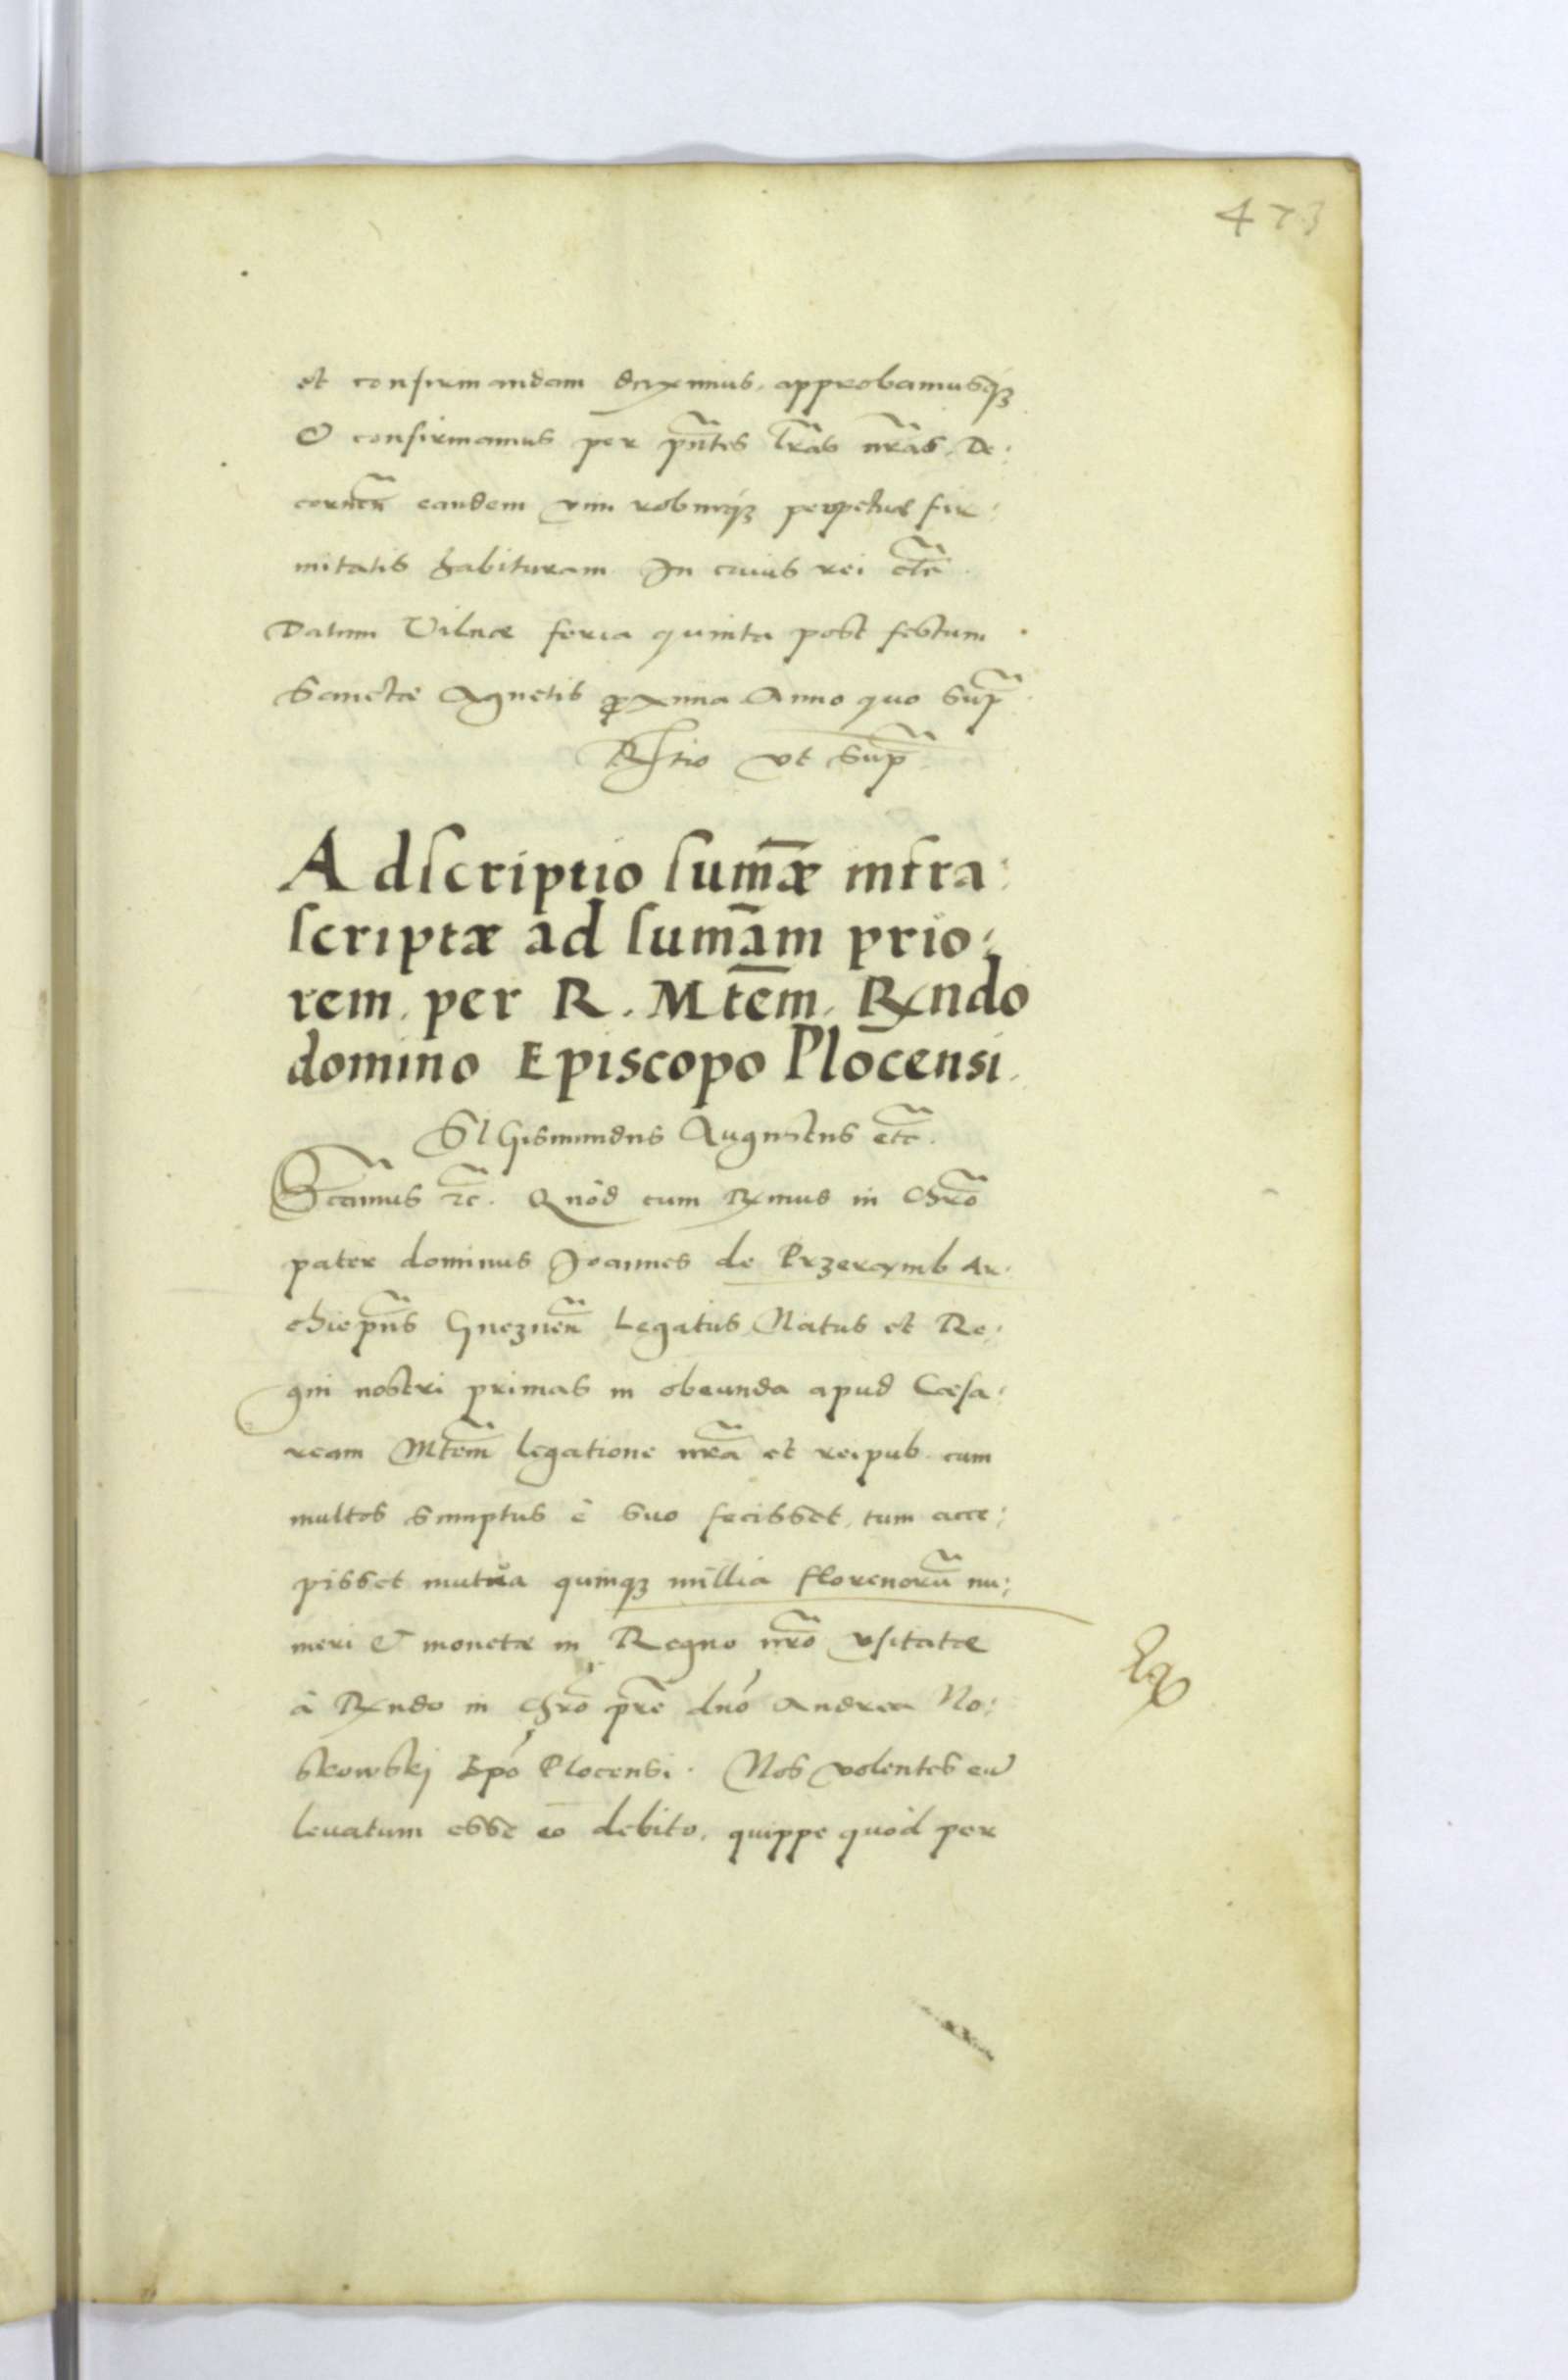 473
et confirmandam duximus, approbamusq(ꝫ
& confirmamus per pñtes l̃ras nr̃as. De:
cernen̄ eandem vim roburqꝫ perpetuæ fir:
mitatis habituram In cuius rei etc̃.
Datum Vilnæ feria quinta post festum
Sanctæ Agnetis ꝓxima Anno quo sup̃
Rl̃tio vt sup̃
Adscriptio sum̄æ infra:
scriptæ ad sum̄am prio:
rem. per R. Mtēm. Rx̄ndo
domino Episcopo Plocensi.
SIGismundus Augustus etc̃.
Significamus ꝛc̃. Quòd cum Rx̄mus in Chr̃o
pater dominus Joannes de Przerąmb Ar:
chiepũs Gneznen̄ Legatus Natus et Re:
gni nostri primas in obeunda apud Cæsa:
ream Mtēm legatione nr̃a et reipub. cum
multos sumptus è suo fecisset, tum acce:
pisset mutua quinqꝫ millia florenorũ nu:
meri & monetæ in Regno nr̃o vsitatæ
à Rx̄ndo in Chr̃o pr̃e dnó Andrea No:
skowskj Epó Plocensi. Nos volentes eũ
leuatum esse eo debito, quippe quòd per